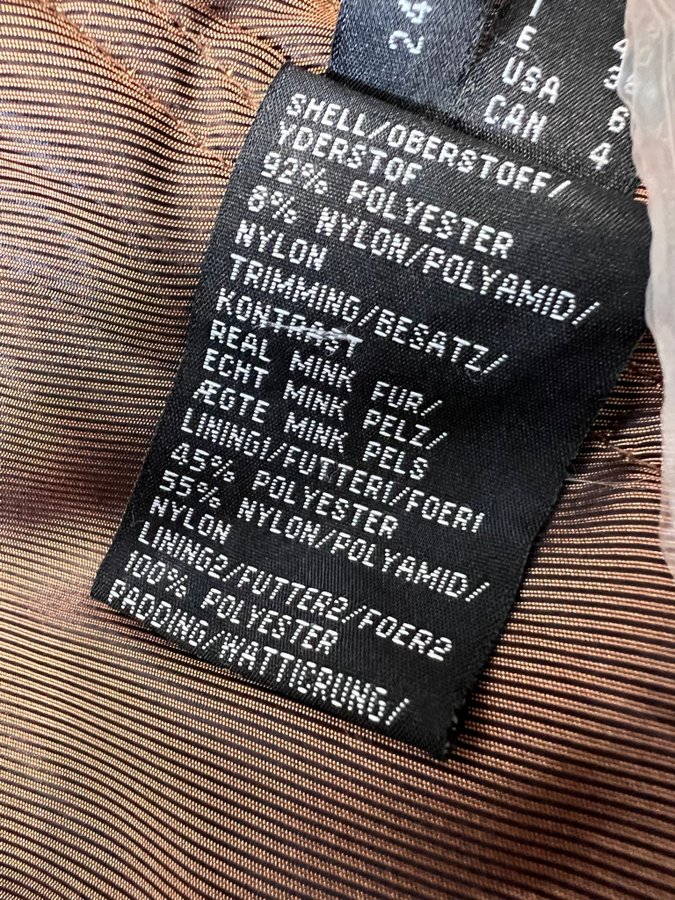 24
E 4
USA
CAN 6
4
SHELL/OBERSTOFF/
YDERSTOF
92% POLYESTER
8% NYLON/POLYAMID/
NYLON
TRIMMING/BESATZ/
KONTRAST
REAL MINK FUR/
ECHT MINK PELZ/
ÆGTE MINK PELS
LINING1/FUTTER1/FOER1
45% POLYESTER
55% NYLON/POLYAMID/
NYLON
LINING2/FUTTER2/FOER2
100% POLYESTER
PADDING/WATTIERUNG/